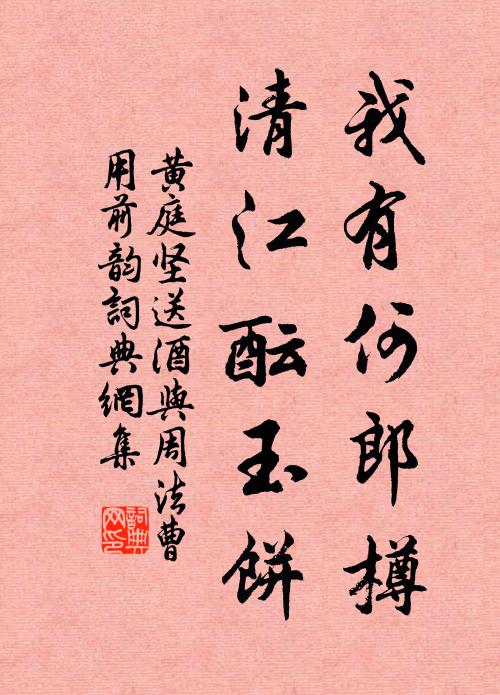 我有何郎樽
清江酝玉餅
黄庭坚送酒與周法曹
用前韵詞典網集
詞典网印